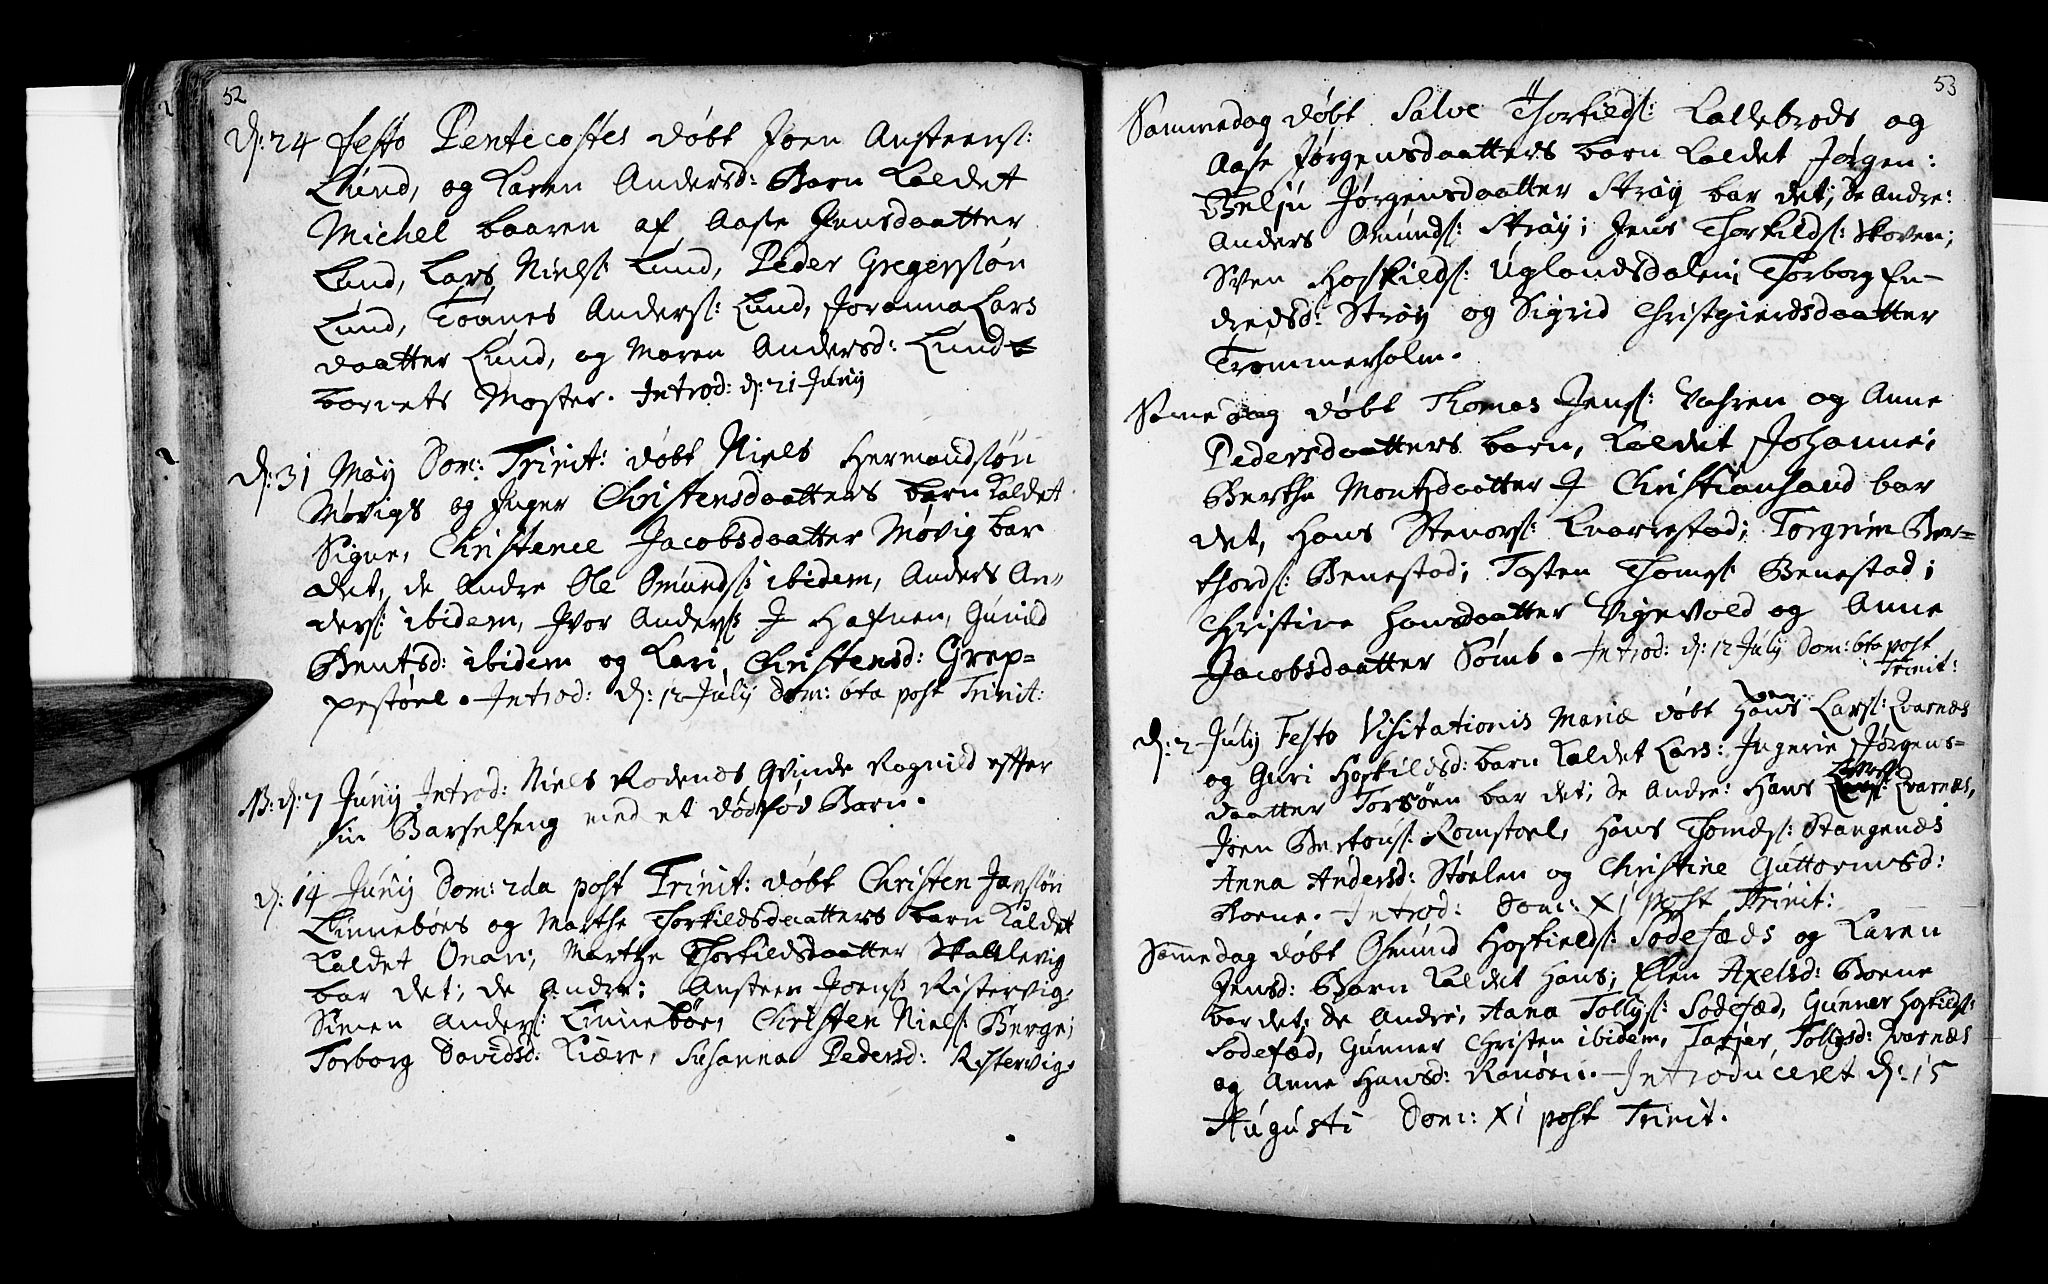 52
D: 24 Festo Pentecostes døbt Joen Ansteens:
Lund, og Karen Andersd: Barn Kaldet
Michel baaren af Aase Jensdaatter
Lund, Lars Niels: Lund, Peder Gregersøn
Lund, Tønnes Anders: Lund, Joranna Lars
daatter Lund, og Maren Andersd: Lund
barnets Moster. Introd: d: 21 Junij
D: 31 Maij Dom: Trinit: døbt Niels Hermandsøn
Møvigs og Inger Christensdaatters barn Kaldet
Signe, Christence Jacobsdaatter Møvig bar
det, de Andre Ole Omunds: ibidem, Anders An-
ders: ibidem, Iver Anders: I Hafnen, Gunild
Bentsd: ibidem og Kari Christensd: Grep-
pestøel. Introd: d: 12 Julij Dom: 6ta post Trinit:
D: 7 Junij Introd: Niels Rodenæs Qvinde Ragnild effter
sin Barselseng med et dødfød Barn.
D: 14 Junij Dom: 2da post Trinit: døbt Christen Jansøn
Linnebøes og Marthe Thorkildsdaatters barn Kaldet
Kaldet Onan; Marthe Thorkildsdaatter Skallevig
bar det; de Andre; Ansteen Joens: Ristervig,
Simen Anders: Linnebøe, Christen Niels: Berge;
Torborg Davidsd: Kiære, Susanna Pedersd: Ristervig.
53
Sammedag døbt Salve Thorkilds: Kallebrods og
Aase Jørgensdaatters barn Kaldet Jørgen:
Belju Jørgensdaatter Strøy bar det; de Andre:
Anders Omunds: Strøy; Jens Thorkilds: Skoven;
Sven Hoskilds: Uglandsdalen; Thorborg En-
dredsd: Strøy og Sigrid Christgierdsdaatter
Trommerholm.
Same dag døbt Thomas Jens: Vahren og Anne
Pedersdaatters barn, Kaldet Johanne;
Berthe Montsdaatter I Christiansand bar
det, Hans Stenors: Kvarestad; Torgrim Ber-
thors: Benestad; Tosten Thomes: Benestad;
Christine Hansdaatter Vigevold og Anne
Jacobsdaatter Søms. Introd: d: 12 Julij Dom: 6ta post
Trinit:
D: 2 Julij Festo Visitationis Mariæ døbt Hans Lars: Kvarnæs
og Guri Hoskildsd: barn Kaldet Lars: Ingerie Jørgens-
daatter Torsøen bar det; de Andre: Hans Lars: Kvarnæs,
Joen Bertons: Romstoel, Hans Thomes: Stangenæs
Anna Andersd: Støelen og Christine Guttormsd:
Boene. Introd: Dom: XI post Trinit:
Samedag døbt Osmund Hoskields: Sodefæds og Karen
Jensd: Barn Kaldet Hans; Elen Axelsd: Boene
bar det; de Andre; Aana Tollijs: Sodefæd, Gunner Hoskilds:
Sodefæd, Gunner Christen ibidem, Tarjer Tollijsd: Kvarnæs
og Anne Hansd: Ronøen. Introduceret d: 15
Augusti Dom: XI post Trinit.